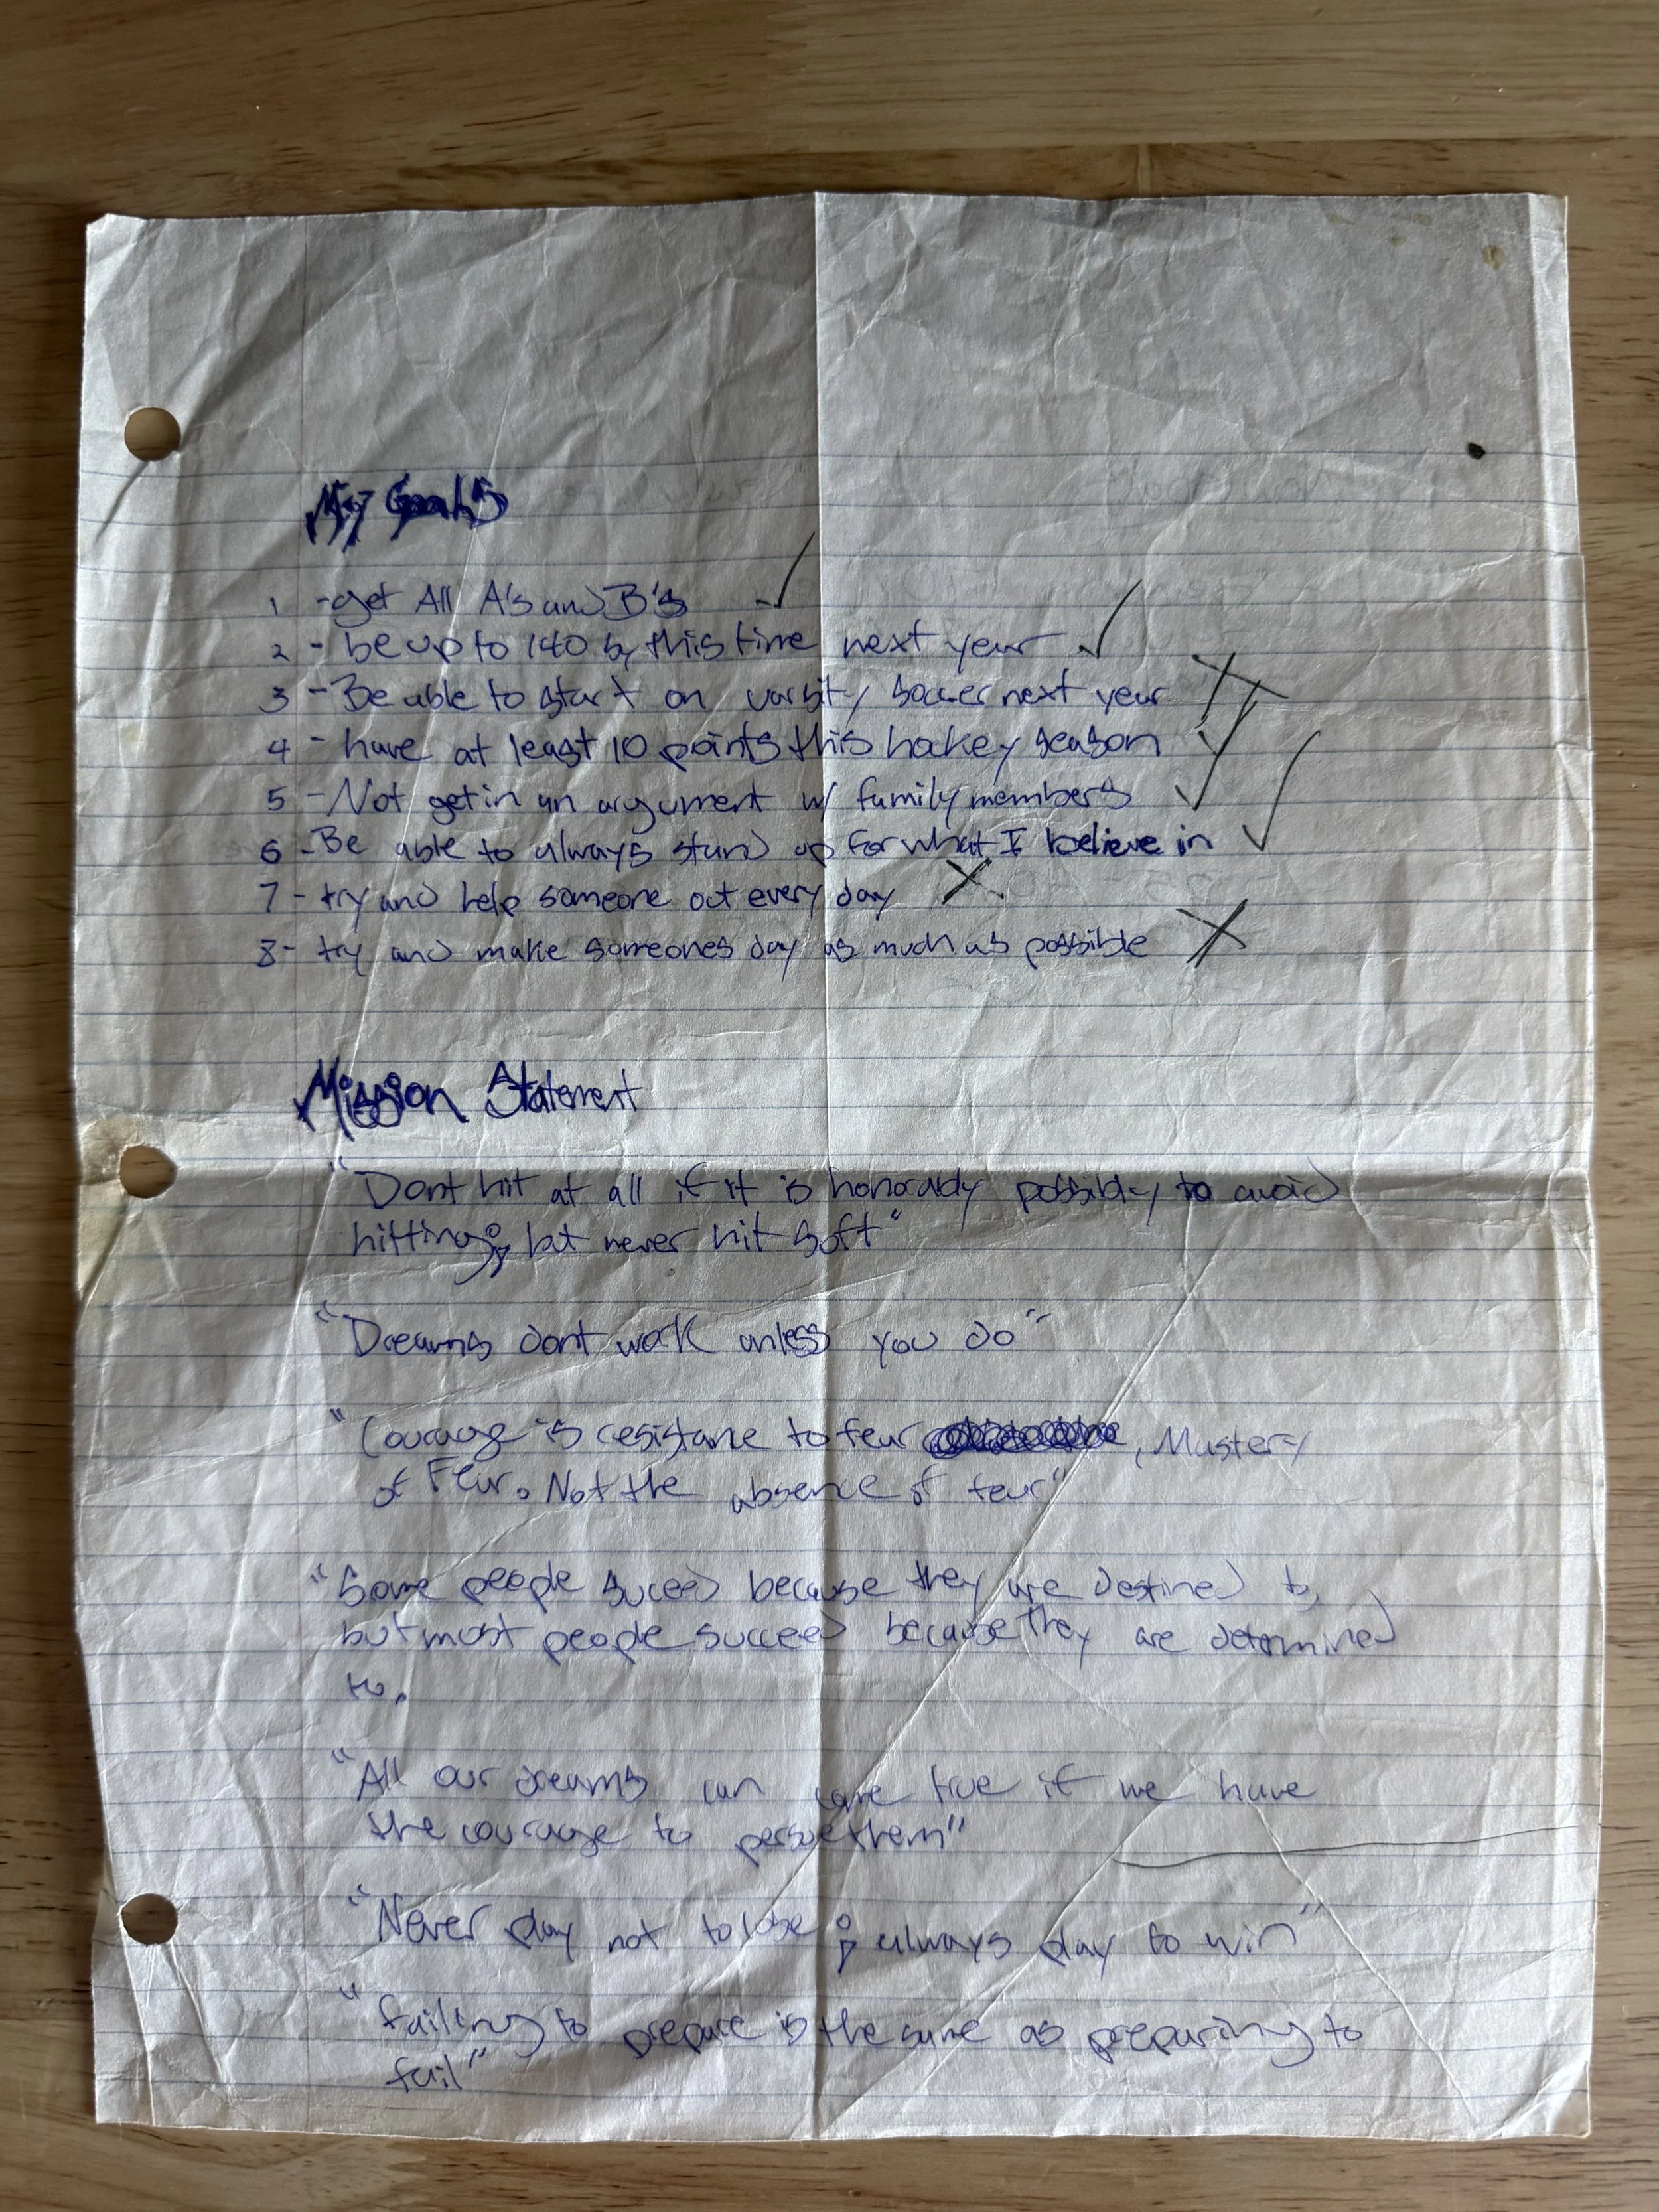 My Goals
1 - get All A's and B's ✓
2 - be up to 140 by this time next year ✓
3 - Be able to start on varsity soccer next year X
4 - have at least 10 points this hockey season ✓
5 - Not get in an argument w/ family members ✓
6 - Be able to always stand up for what I believe in ✓
7 - try and help someone out every day X
8 - try and make someones day as much as possible X
Mission Statement
"Dont hit at all if it is honorably possibly to avoid
hitting; but never hit soft"
"Dreams dont work unless you do"
"Courage is resistane to fear, Mastery
of Fear. Not the absence of fear"
"Some people suceed because they are destined to,
but most people succeed because they are determined
to.
"All our dreams can come true if we have
the courage to persue them"
"Never play not to lose; always play to win"
"failing to prepare is the same as preparing to
fail"